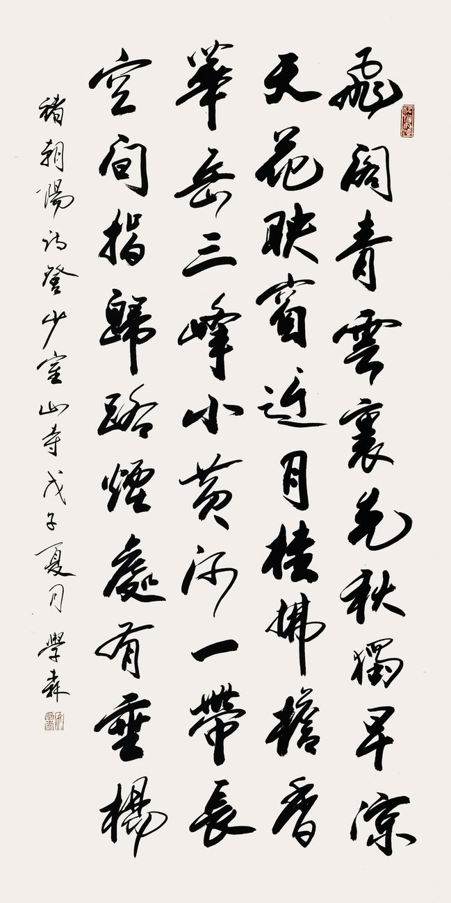 飛閣青雲裏先秋獨早涼
天花映窗近月桂拂檐香
華岳三峰小黃河一帶長
空間指歸路煙處有垂楊
褚朝陽詩登少室山寺戊子夏月 學森